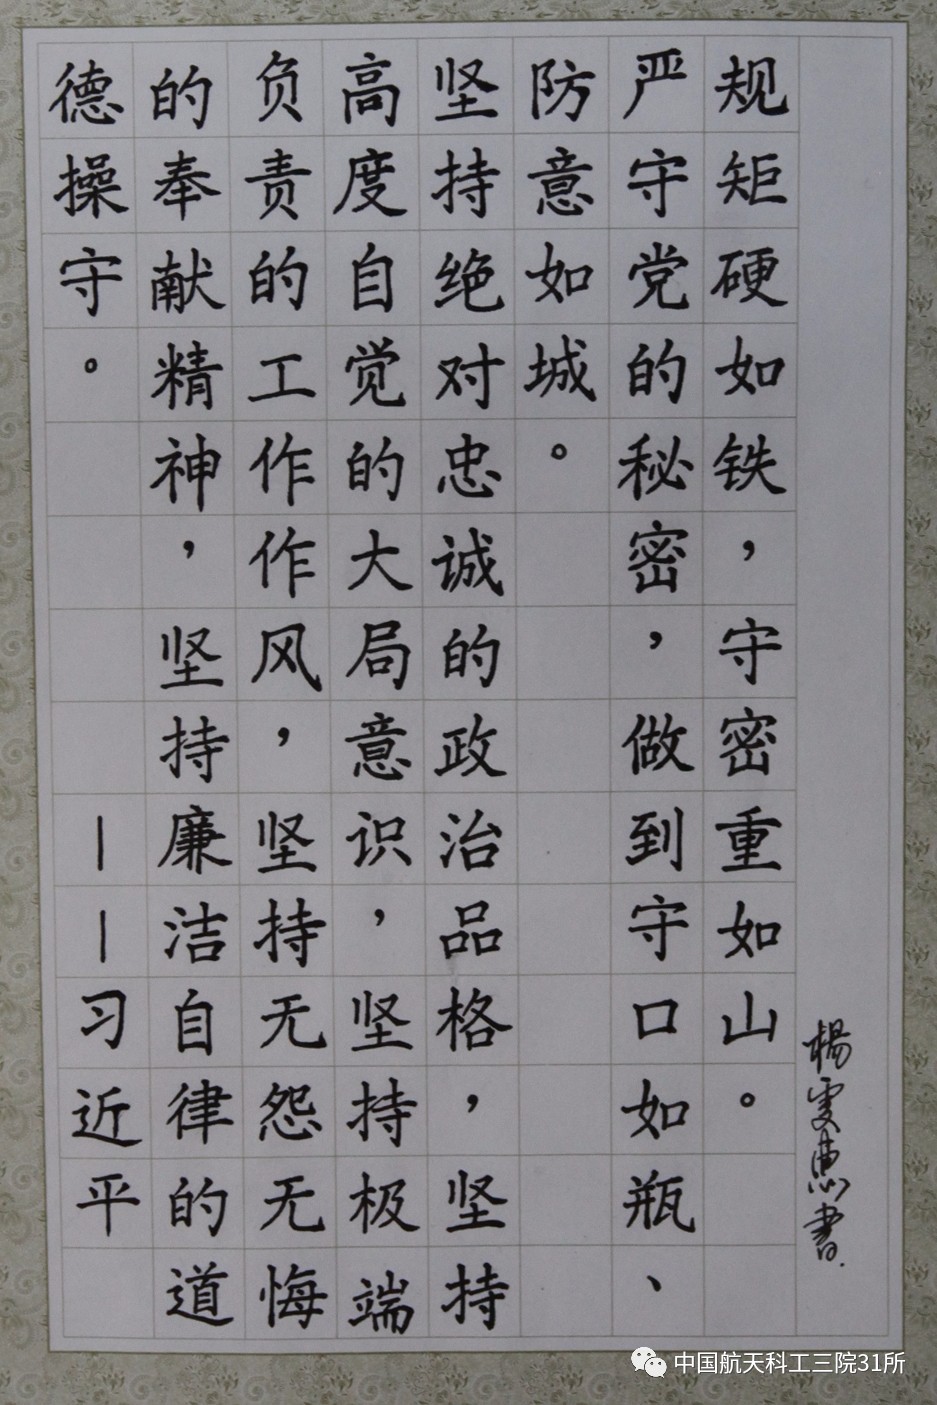 规矩硬如铁，守密重如山。
严守党的秘密，做到守口如瓶、
防意如城。
坚持绝对忠诚的政治品格，坚持
高度自觉的大局意识，坚持极端
负责的工作作风，坚持无怨无悔
的奉献精神，坚持廉洁自律的道
德操守。——习近平
杨雯惠书
中国航天科工三院31所